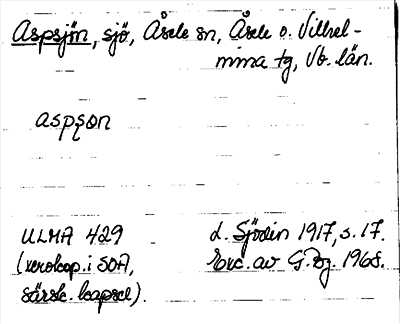 Aspsjön, sjö, Åsele sn, Åsele o. Vilhel-
mina tg, Vb. län.
aspʂɷn
ULMA 429
(xerokop. i SOA,
särsk. kapsel).
d. Sjödin 1917, s. 17.
Exc. av G. Bg. 1968.